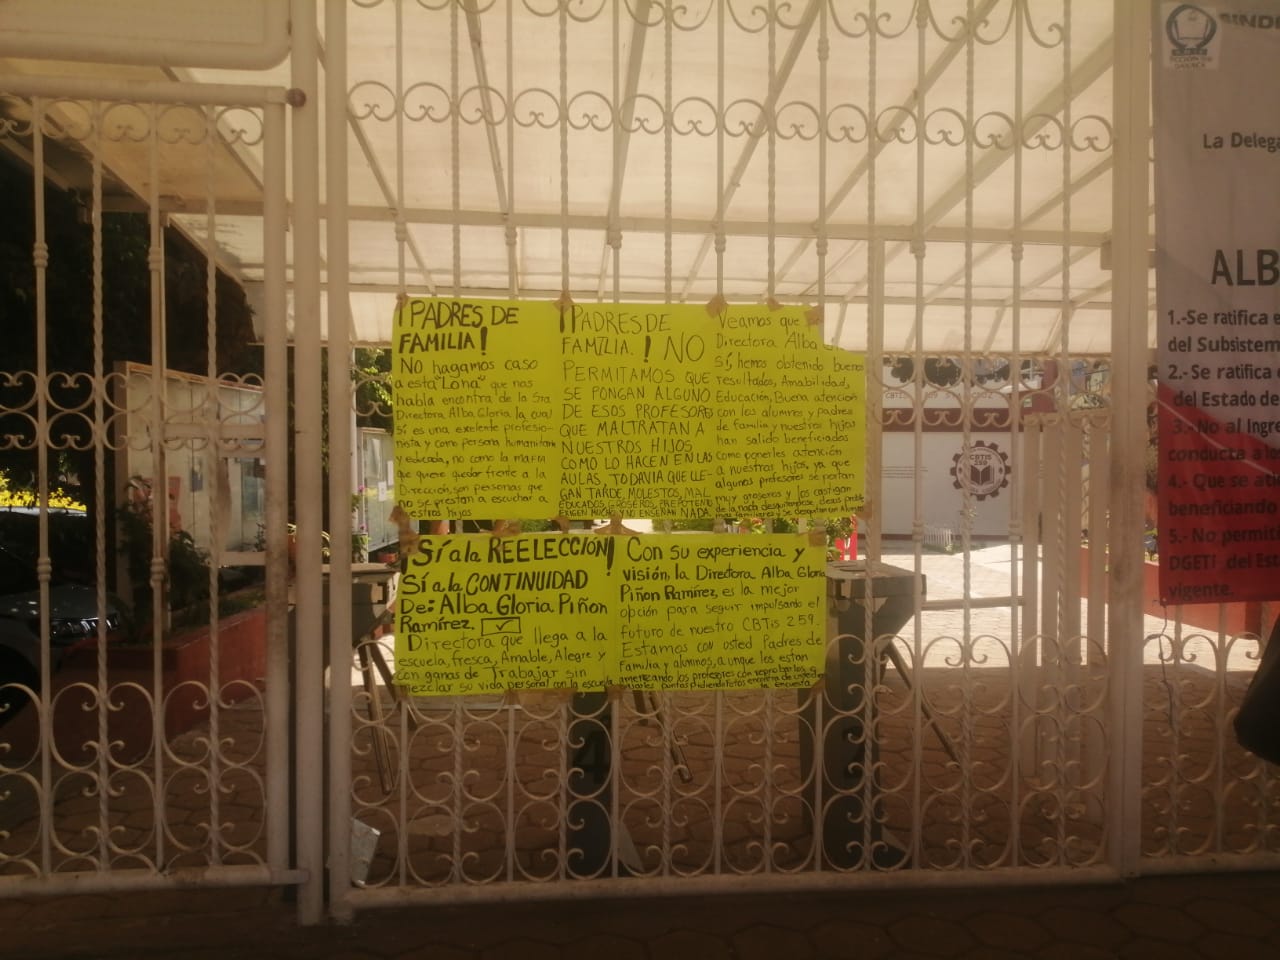 ¡PADRES DE
FAMILIA!
NO hagamos caso
a esta "Lona" que nos
habla encontra de la Sra
Directora Alba Gloria, la cual
Sí es una exelente profesio-
nista y como persona humanitaria
y educada, no como la mafia
que quiere quedar frente a la
Dirección, son personas que
no se prestan a escuchar a
nuestros hijos
¡PADRES DE
FAMILIA.! NO
PERMITAMOS QUE
SE PONGAN ALGUNO
DE ESOS PROFESORES
QUE MALTRATAN A
NUESTROS HIJOS
COMO LO HACEN EN LAS
AULAS, TODAVIA QUE LLE-
GAN TARDE, MOLESTOS, MAL
EDUCADOS, GROSEROS, PREPOTENTES
EXIGEN MUCHO Y NO ENSEÑAN NADA.
Veamos que
Directora Alba
Sí, hemos obtenido buenos
resultados, Amabilidad,
Educación, Buena atención
con los alumnos y padres
de familia y nuestros hijos
han salido beneficiados
como ponerles atención
a nuestros hijos, ya que
algunos profesores se portan
muy groseros y los castigan
de la nada desquitandose
¡Sí a la REELECCIÓN!
Sí a la CONTINUIDAD
De: Alba Gloria Piñon
Ramírez. ✓
Directora que llega a la
escuela, fresca, Amable, Alegre y
con ganas de Trabajar sin
mezclar su vida personal con la escuela
Con su experiencia y
visión, la Directora Alba Gloria
Piñon Ramírez, es la mejor
opción para seguir impulsando el
futuro de nuestro CBTis 259.
Estamos con usted Padres de
Familia y alumnos, aunque los estan
amenazando los profesores con reprobarlos
la encuesta
CBTIS
259
SINDI
La Delega
ALB
1.-Se ratifica e
del Subsistem
2.- Se ratifica
del Estado de
3.- No al Ingre
conducta a los
4.- Que se
beneficiando
5.- No permiti
DGETI del Est
vigente.